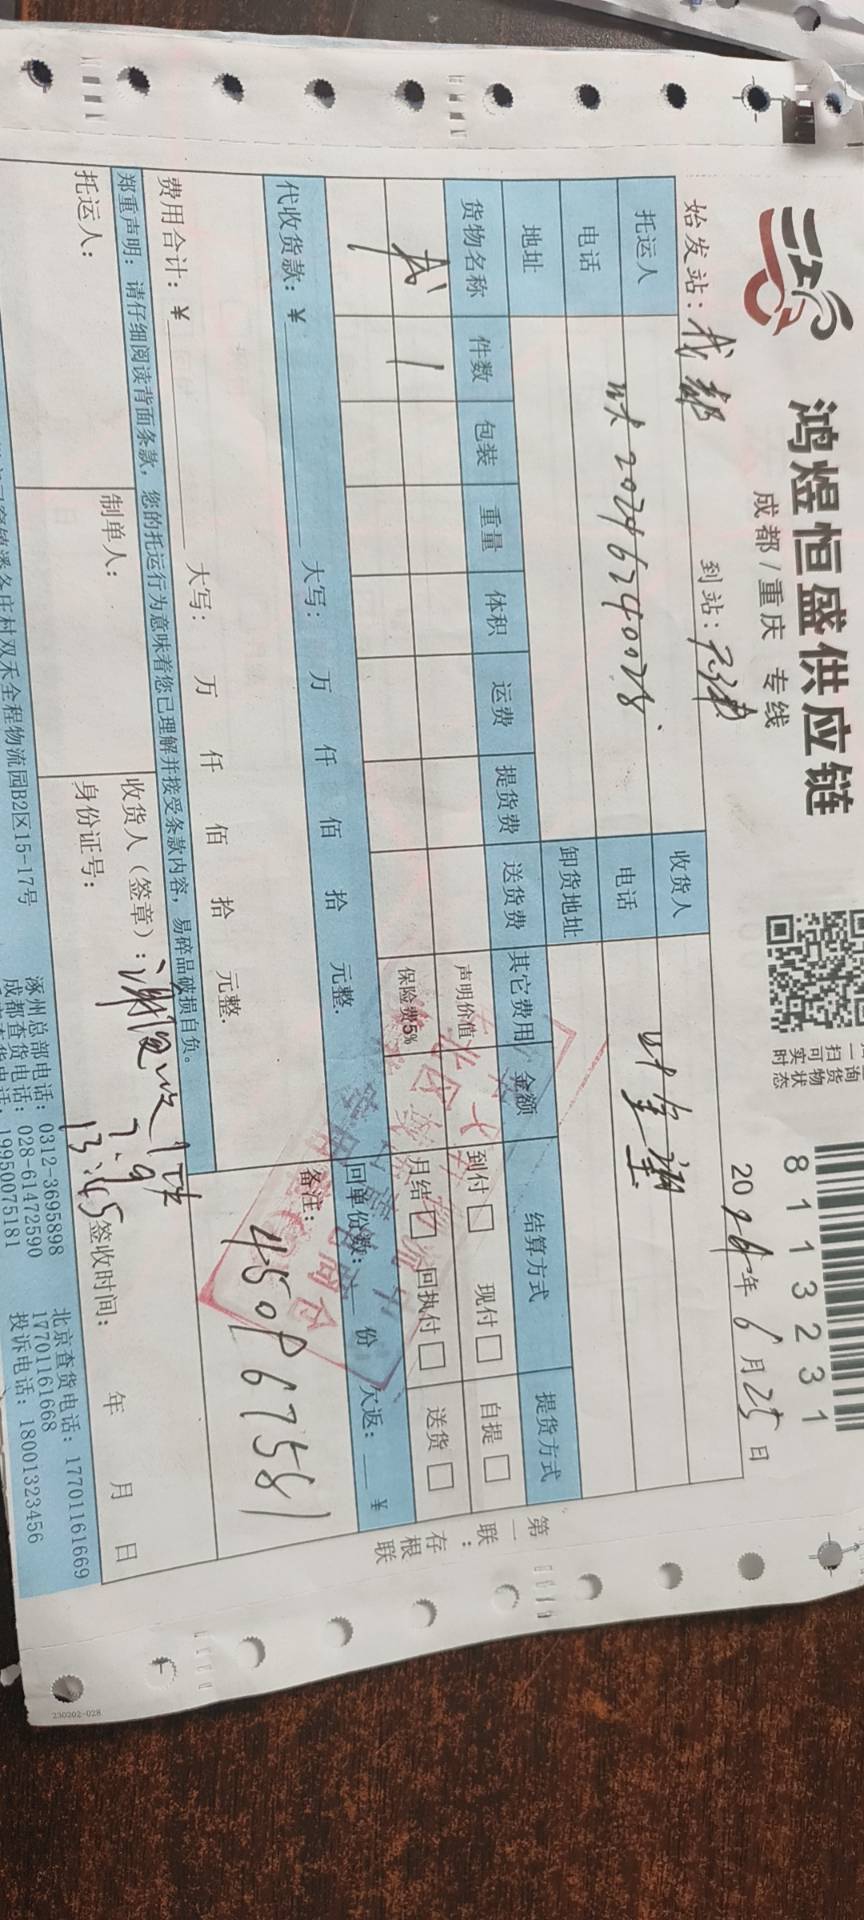 鸿煜恒盛供应链
成都/重庆 专线
8113231
始发站：成都 到站：天津 2024年6月25日
托运人 收货人
时 202406240028
电话 电话
地址 卸货地址
货物名称 件数 包装 重量 体积 运费 提货费 送货费 其它费用 金额 结算方式 提货方式
书 1 声明价值 到付□ 现付□ 自提□
保险费5% 月结□ 回执付□ 送货□
代收货款：¥ 大写： 万 仟 佰 拾 元整. 回单份数： 份 欠返： ¥
费用合计：¥ 大写： 万 仟 佰 拾 元整. 备注：
45096758 1
郑重声明：请仔细阅读背面条款，您的托运行为意味着您已理解并接受条款内容，易碎品破损自负。
托运人： 制单人： 收货人（签章）：
7.9
身份证号： 13:45 签收时间： 年 月 日
第一联：存根联
双禾全程物流园B2区15-17号
涿州总部电话：0312-3695898 北京查货电话：17701161669
成都查货电话：028-61472590 17701161668
19950075181 投诉电话：18001323456
230202-028